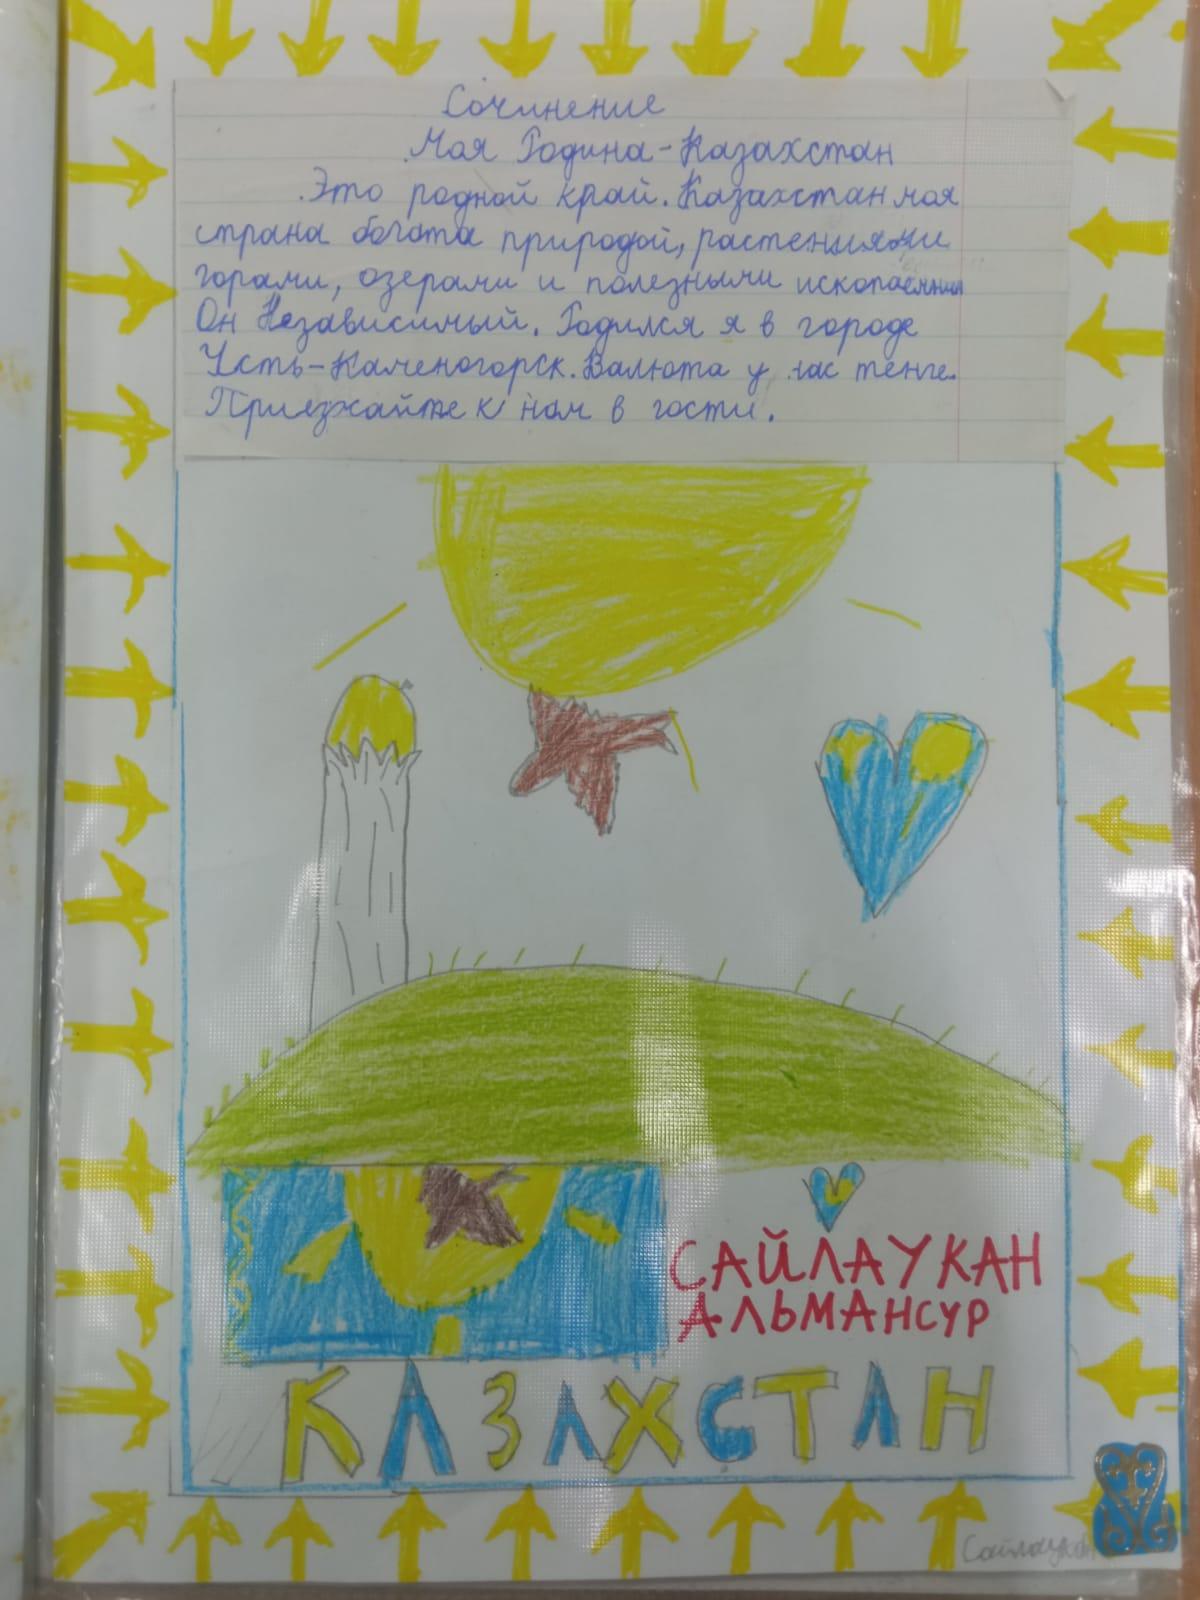 Сочинение
Моя Родина - Казахстан
Это родной край. Казахстан моя
страна богата природой, растениями
горами, озерами и полезными ископаемыми
Он Независимый. Родился я в городе
Усть-Каменогорск. Валюта у нас тенге.
Приезжайте к нам в гости.
САЙЛАУКАН
АЛЬМАНСУР
КАЗАХСТАН
Сайлаукан